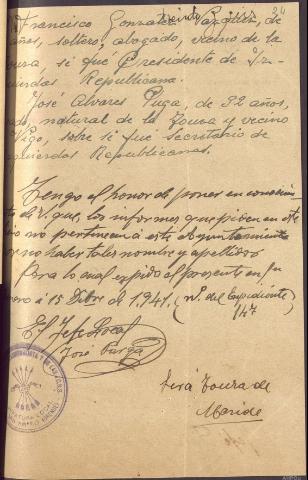 Francisco Gonzalez Vazquez, de
treinta
ños, soltero, abogado, vecino de la
ousa si fue Presidente de Iz-
uierdas Republicana.
José Alvares Puga, de 32 años,
ado, natural de la Tousa y vecino
Vigo, sobre si fué Secretario de
quierdas Republicanas.
Tengo el honor de poner en conocimien
to de V. que, los informes que piden en este
no pertinecen á este Ayuntamiento
por no haber tales nombre y apellidos
Para lo cual expido el presente en
á 15 Dibre de 1.941. (nº. del Expediente
/47
El Jefe Local
José
Será Touza de
Maside